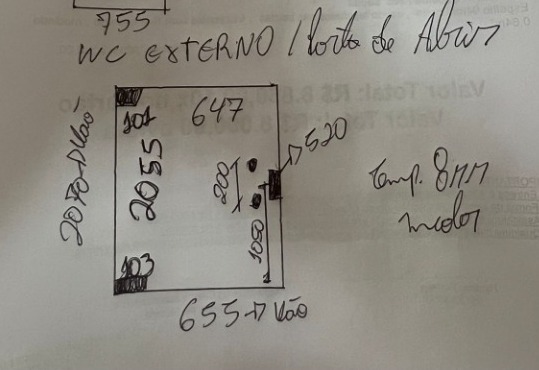 755
WC EXTERNO / Porta de Abrir
101
647
2070 → Vão
2055
200
→ 520
1050
103
Temp. 8MM
incolor
655 → Vão
Valor Total: R$
Valor Total: R$